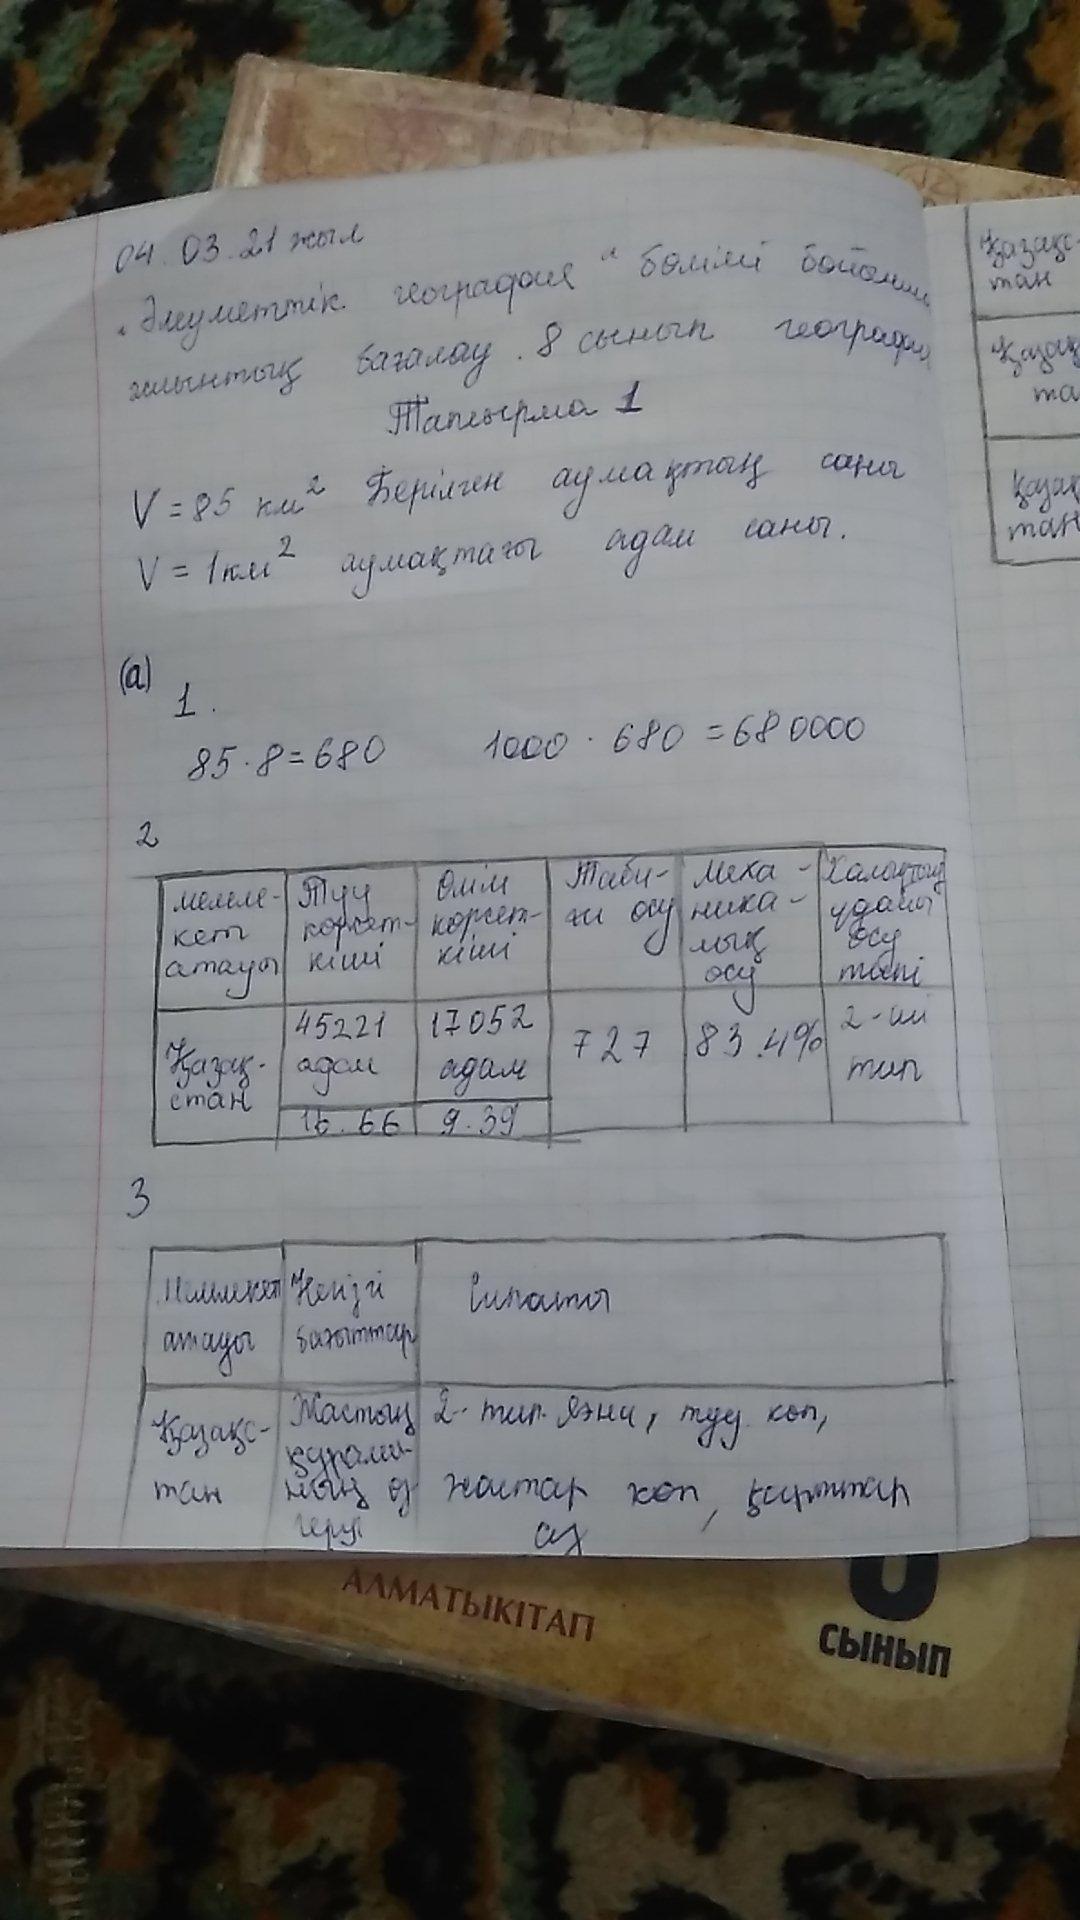 04.03.21 жыл
"Әлеуметтік география" бөлімі бойынша
жиынтық бағалау. 8 сынып география
Тапсырма 1
V = 85 км² Берілген аумақтың саны
V = 1 км² аумақтағы адам саны.
(а)
1.
85 · 8 = 680 1000 · 680 = 680000
2
мемле-
кет
атауы
Туу
көрсет-
кіші
Өлім
көрсет-
кіші
Таби-
ғи өсу
Меха-
ника-
лық
өсу
Халықтың
ұдайы
өсу
типі
Қазақ-
стан
45221
адам
17052
адам
727
83.4%
2-ші
тип
16.66
9.39
3
Мемлекет
атауы
Негізгі
бағыттар
Сипаты
Қазақс-
тан
Жастың
құрамы-
ның өз-
геруі
2-тип. Яғни, туу көп,
жастар көп, қарттар
аз
Қазақс-
тан
Қазақ
та
Қазақ
тан
АЛМАТЫКІТАП
СЫНЫП